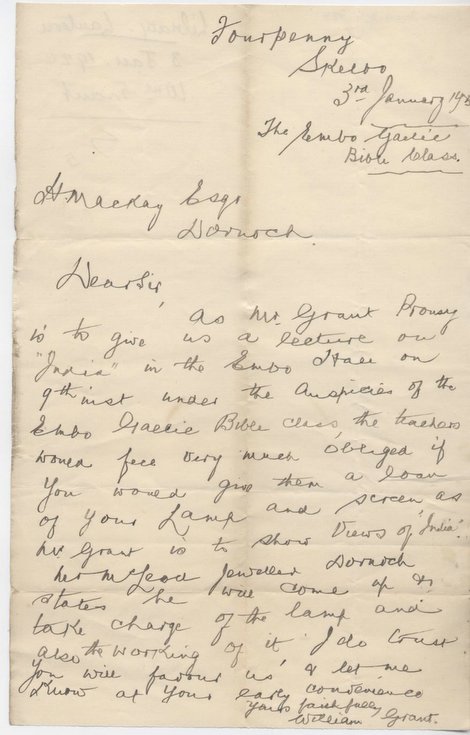 Fourpenny
Skelbo
3rd January 19
The Embo Gaelic
Bible Class.
H. Mackay Esqr
Dornoch.
Dear Sir
As Mr. Grant
is to give us a lecture on
"India" in the Embo Hall on
9th inst under the Auspicies of the
Embo Gaelic Bible class the teachers
would feel very much obliged if
you would give them a loan
of your Lamp and screen as
Mr Grant is to show Views of "India".
Mr McLeod Jeweller Dornoch
states he will come up &
take charge of the lamp and
also the working of it I do trust
you will favour us, & let me
know at your early convenience
yours faithfully
William Grant.